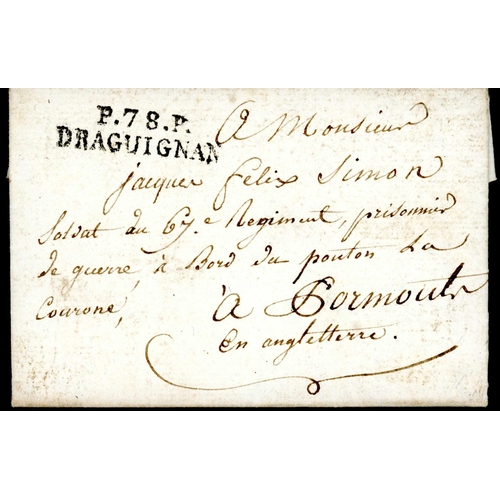 P.78.P.
DRAGUIGNAN
A Monsieur
jacques Felix Simon
Soldat du 67.e Regiment, prisonnier
de guerre, à Bord du ponton La
Courone,
à Pormouth
En angletterre.